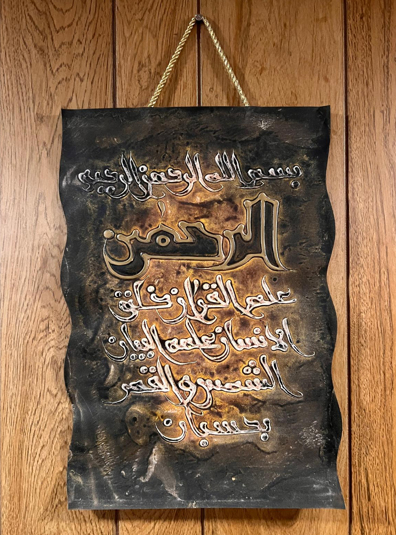 بسم الله الرحمن الرحيم
الرحمن
علم القرآن خلق
الانسان علمه البيان
الشمس والقمر
بحسبان